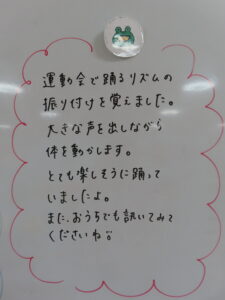 運動会で踊るリズムの
振り付けを覚えました。
大きな声を出しながら
体を動かします。
とても楽しそうに踊って
いましたよ。
また、おうちでも訊いてみて
くださいね。